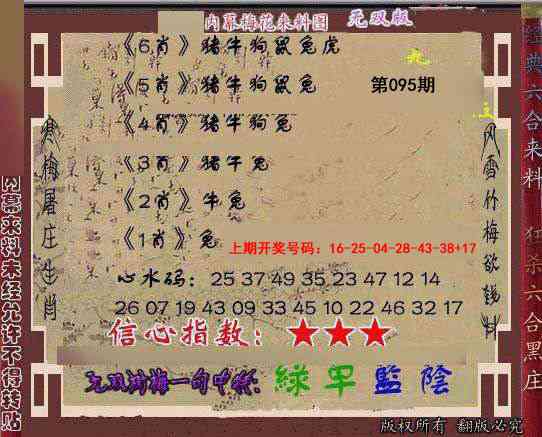 内幕梅花来料图 无双版
《6肖》猪牛狗鼠兔虎
《5肖》猪牛狗鼠兔 第095期
《4肖》猪牛狗兔
《3肖》猪牛兔
《2肖》牛兔
《1肖》兔
上期开奖号码：16-25-04-28-43-38+17
心水码：25 37 49 35 23 47 12 14
26 07 19 43 09 33 45 10 22 46 32 17
信心指数：★★★
绿 罕 監 陰
版权所有 翻版必究
寒梅屠庄生肖
风雪竹梅欲钱料
内幕来料未经允许不得转贴
经典六合来料 狂杀六合黑庄